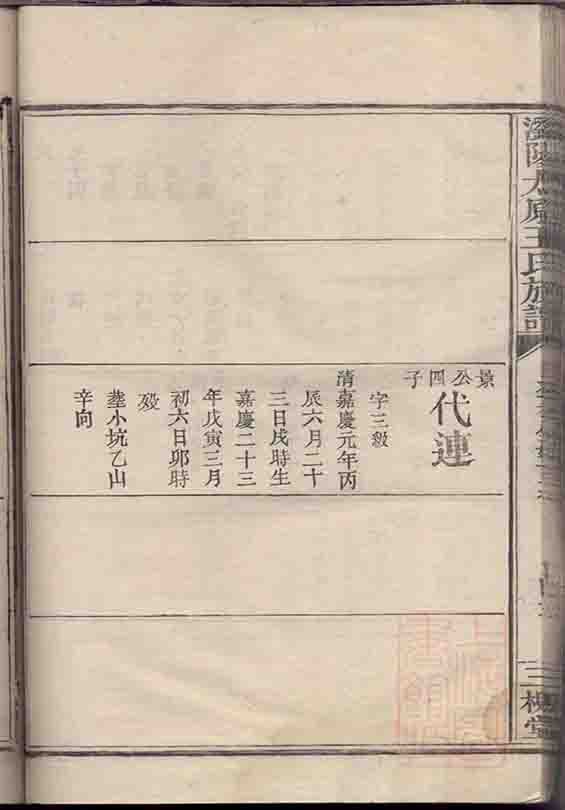 瀏陽太原王氏族譜
三槐堂
景公四子
代連
字三級
清嘉慶元年丙
辰六月二十
三日戌時生
嘉慶二十三
年戊寅三月
初六日卯時
歿
塟小坑乙山
辛向